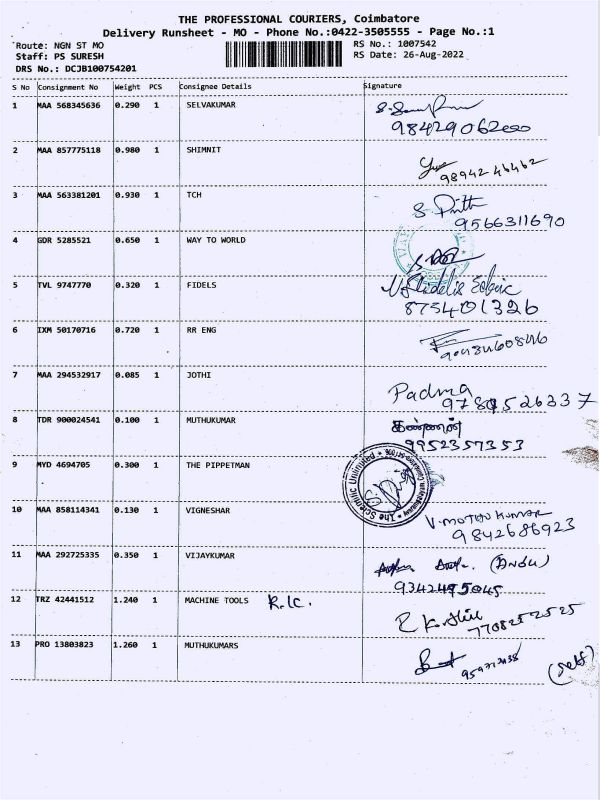 THE PROFESSIONAL COURIERS, Coimbatore
Delivery Runsheet - MO - Phone No.:0422-3505555 - Page No.:1
Route: NGN ST MO RS No.: 1007542
Staff: PS SURESH RS Date: 26-Aug-2022
DRS No.: DCJB100754201
S No Consignment No Weight PCS Consignee Details Signature
1 MAA 568345636 0.290 1 SELVAKUMAR
2 MAA 857775118 0.980 1 SHIMNIT
98942 46462
3 MAA 563381201 0.930 1 TCH
9566311690
4 GDR 5285521 0.650 1 WAY TO WORLD
5 TVL 9747770 0.320 1 FIDELS
875401326
6 IXM 50170716 0.720 1 RR ENG
7 MAA 294532917 0.085 1 JOTHI
Padma
8 TDR 900024541 0.100 1 MUTHUKUMAR
9952357353
9 MYD 4694705 0.300 1 THE PIPPETMAN
The Scientific Unlimited
10 MAA 858114341 0.130 1 VIGNESHAR
V. MOTHU KUMAR
9842686923
11 MAA 292725335 0.350 1 VIJAYKUMAR
12 TRZ 42441512 1.240 1 MACHINE TOOLS
7708252525
13 PRO 13803823 1.260 1 MUTHUKUMARS
(self)